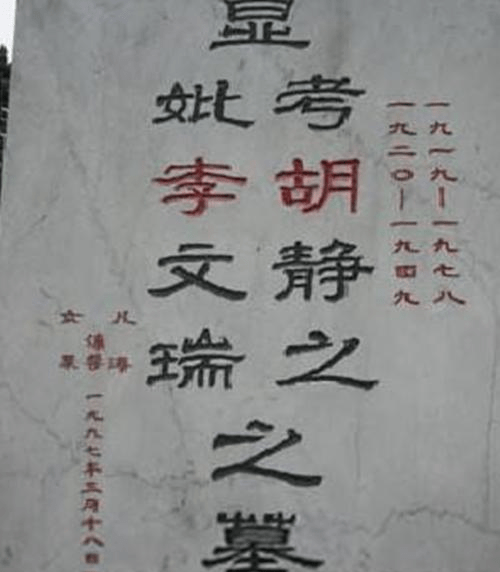 一九一九—一九七八
一九二〇—一九四九
显
考胡静之
妣李文瑞
之墓
儿 海
女 果
一九九七年三月十八日